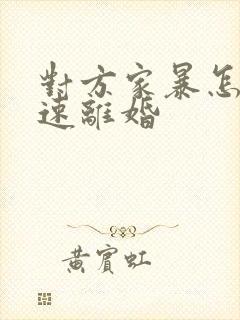 對方家暴怎
速離婚
黃賓虹